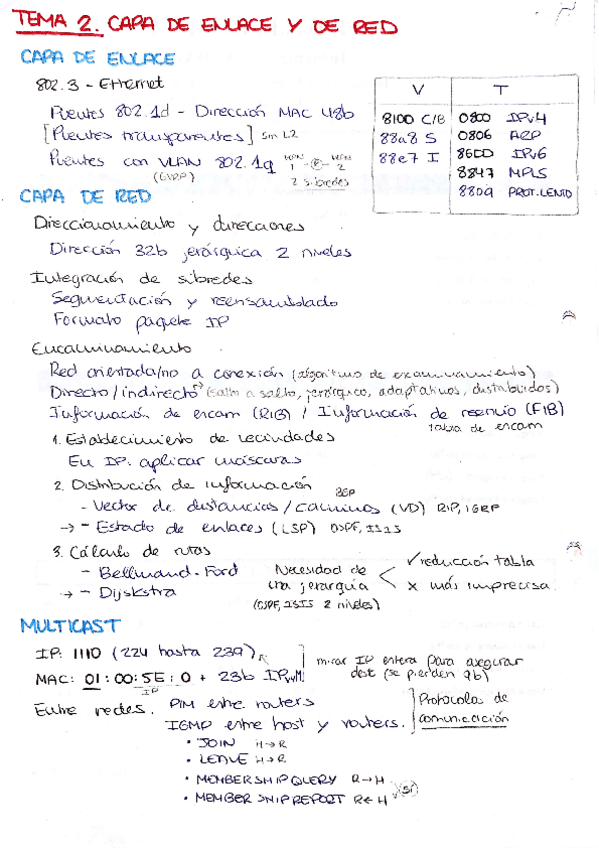 TEMA 2. CAPA DE ENLACE Y DE RED
CAPA DE ENLACE
802.3 - Ethernet
Puentes 802.1d - Dirección MAC 48b
[Puentes transparentes] sin L2
Puentes con VLAN 802.1q VLAN 1 - - VLAN 2
(GVRP) 2 subredes
V T
8100 C/B 0800 IPv4
88a8 S 0806 ARP
88e7 I 86DD IPv6
8847 MPLS
8809 PROT.LENTO
CAPA DE RED
Direccionamiento y direcciones
Dirección 32b jerárquica 2 niveles
Integración de subredes
Segmentación y reensamblado
Formato paquete IP
Encaminamiento
Red orientada/no a conexión (algoritmo de encaminamiento)
Directo/indirecto → (salto a salto, jerárquico, adaptativos, distribuidos)
Información de encam (RIB) / Información de reenvio (FIB)
tabla de encam
1. Establecimiento de vecindades
En IP: aplicar máscaras
2. Distribución de información
BGP
- Vector de distancias/caminos (VD) RIP, IGRP
→ - Estado de enlaces (LSP) OSPF, ISIS
3. Cálculo de rutas
- Bellmand-Ford
→ - Dijskstra
Necesidad de una jerarquía
(OSPF, ISIS 2 niveles)
✓ reducción tabla
x más imprecisa
MULTICAST
IP: 1110 (224 hasta 239)
MAC: 01:00:5E:0 + 23b IPvM
IP
mirar IP entera para asegurar
dest (se pierden 9b)
Entre redes. PIM entre routers
IGMP entre host y routers.
Protocolos de
comunicación
• JOIN H→R
• LEAVE H→R
• MEMBERSHIP QUERY R→H
• MEMBERSHIP REPORT R←H